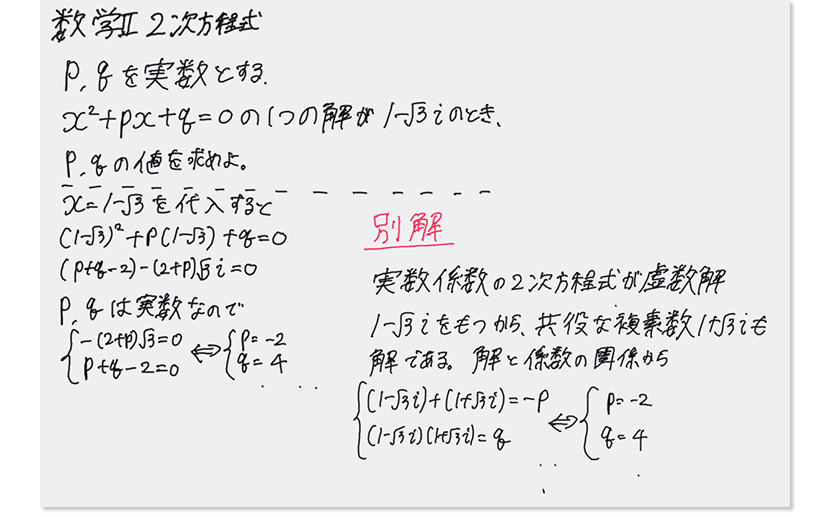 数学Ⅱ 2次方程式
p, qを実数とする.
x²+px+q=0の1つの解が1-√3iのとき、
p, qの値を求めよ。
x=1-√3を代入すると
(1-√3)²+p(1-√3)+q=0
(p+q-2)-(2+p)√3i=0
p, qは実数なので
{-(2+p)√3=0
p+q-2=0
⇔{p=-2
q=4
別解
実数係数の2次方程式が虚数解
1-√3iをもつから、共役な複素数1+√3iも
解である。解と係数の関係から
{(1-√3i)+(1+√3i)=-p
(1-√3i)(1+√3i)=q
⇔{p=-2
q=4